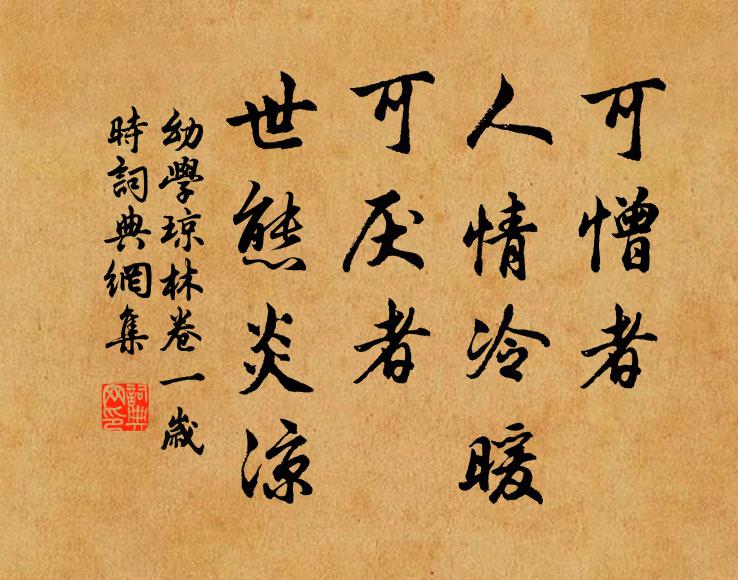 可憎者
人情冷暖
可厌者
世態炎凉
幼學琼林卷一歲
時詞典網集
詞典網印